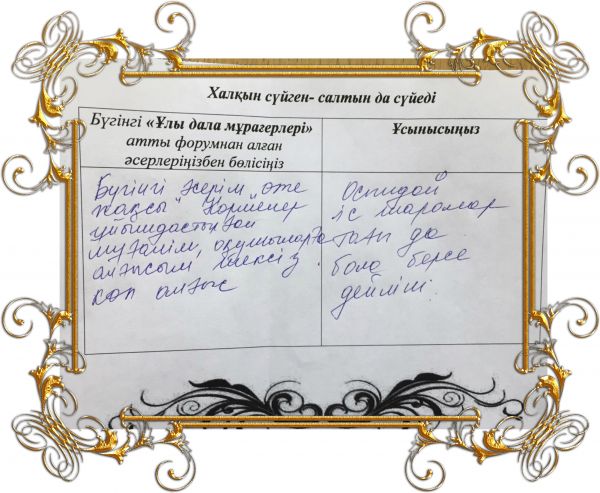 Халқын сүйген- салтын да сүйеді
Бүгінгі «Ұлы дала мұрагерлері»
атты форумнан алған
әсерлеріңізбен бөлісіңіз
Ұсынысыңыз
Бүгінгі әсерім өте
жақсы Көрмелер
ұйымдастырған
мұғалім, оқушыларға
алғысым шексіз.
көп алғыс
Осындай
іс шаралар
тағы да
бола берсе
дейміз.